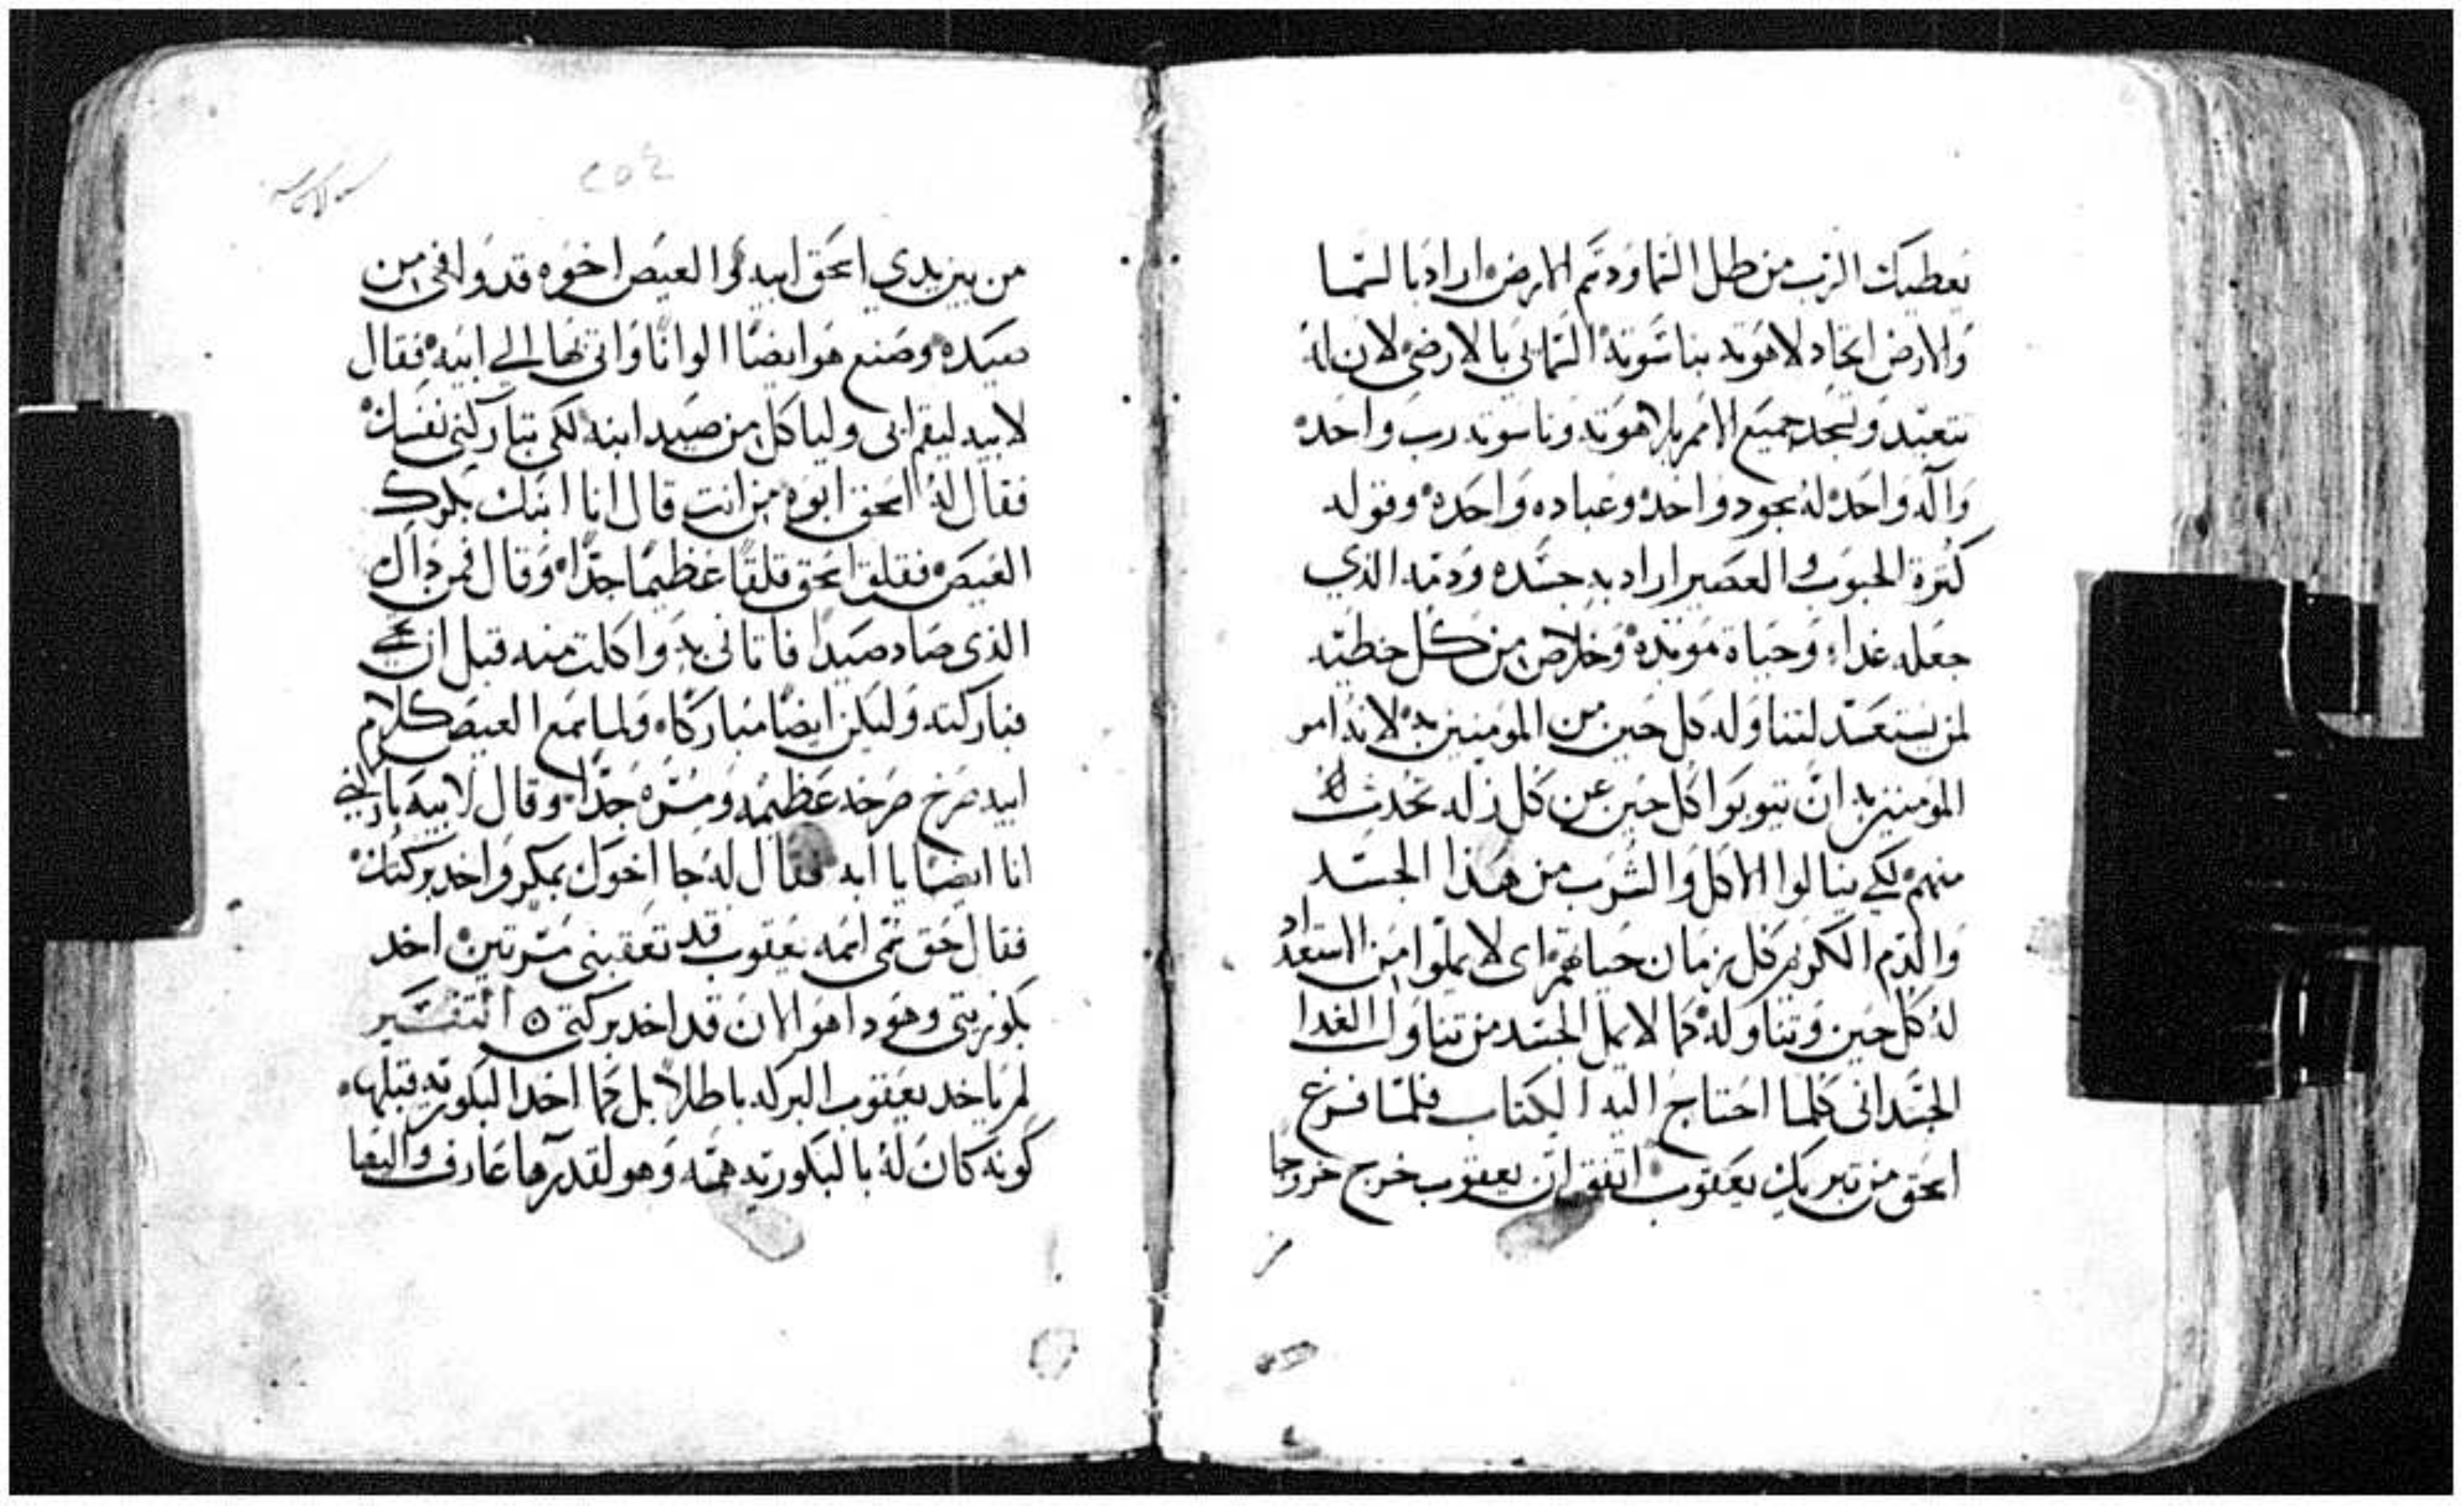 يعطيك الرب من طل السما ودسم الارض اراد بالسما
والارض اتحاد لاهوته بناسوته السمايي بالارضي لان له
تتعبد وتسجد جميع الامم بلاهوته وناسوته رب واحد
واله واحد له سجود واحد وعباده واحده وقوله
كثرة الحبوب والعصير اراد به جسده ودمه الذي
جعله غداء وحياة موبده وخلاص من كل خطيه
لمن يستعد لتناوله كل حين من المومنين به لانه امر
المومنين به ان يتوبوا كل حين عن كل زله تحدث
منهم لكي ينالوا الاكل والشرب من هذا الجسد
والدم الكريم كل زمان حياتهم اى لا يملوا من الاستعداد
له كل حين وتناوله كما لا يمل الجسد من تناول الغدا
الجسدانى كلما احتاج اليه الكتاب فلما فرغ
اسحق من تبريك يعقوب اتفق ان يعقوب خرج خروجا
من
٢٥٤
من بين يدي اسحق ابيه والعيص اخوه قد وافى من
صيده وصنع هو ايضا الوانا واتى بها الي ابيه فقال
لابيه ليقم ابى ولياكل من صيد ابنه لكي تباركنى نفسك
فقال له اسحق ابوه من انت قال انا ابنك بكرك
العيص فقلق اسحق قلقا عظيما جدا وقال فمن داك
الذى صاد صيدا فاتانى به واكلت منه قبل ان تجي
فباركته وليكن ايضا مباركا ولما سمع العيص كلام
ابيه صرخ صرخه عظيمه ومره جدا وقال لابيه باركني
انا ايضا يا ابه فقال له جا اخوك بمكر واخد بركتك
فقال حق سمى اسمه يعقوب قد تعقبنى مرتين اخد
بكوريتى وهودا هو الان قد اخد بركتى ۞ التفسير
لم ياخد يعقوب البركه باطلا بل كما اخد البكوريه قبلها
كونه كان له بالبكوريه همه وهو لقدرها عارف